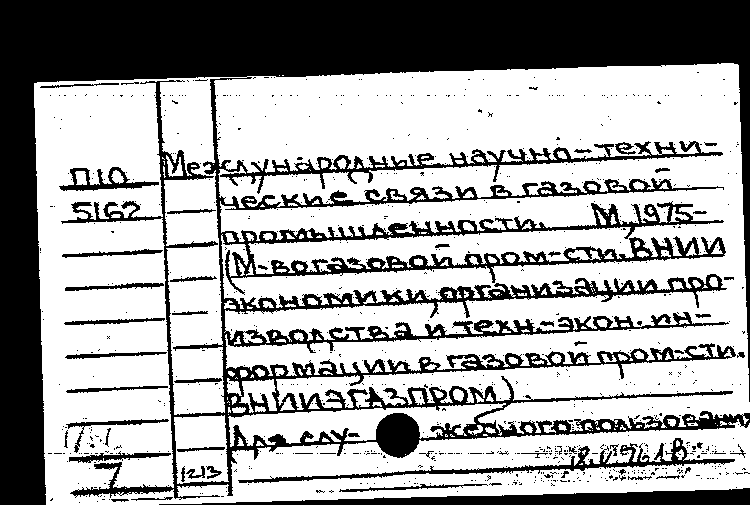 П10 Международные научно-техни-
5162 ческие связи в газовой
промышленности. М, 1975-
(М-во газовой пром-сти. ВНИИ
экономики, организации про-
изводства и техн.-экон. ин-
формации в газовой пром-сти.
ВНИИЭГАЗПРОМ).
Для слу- жебного пользования
7 1213